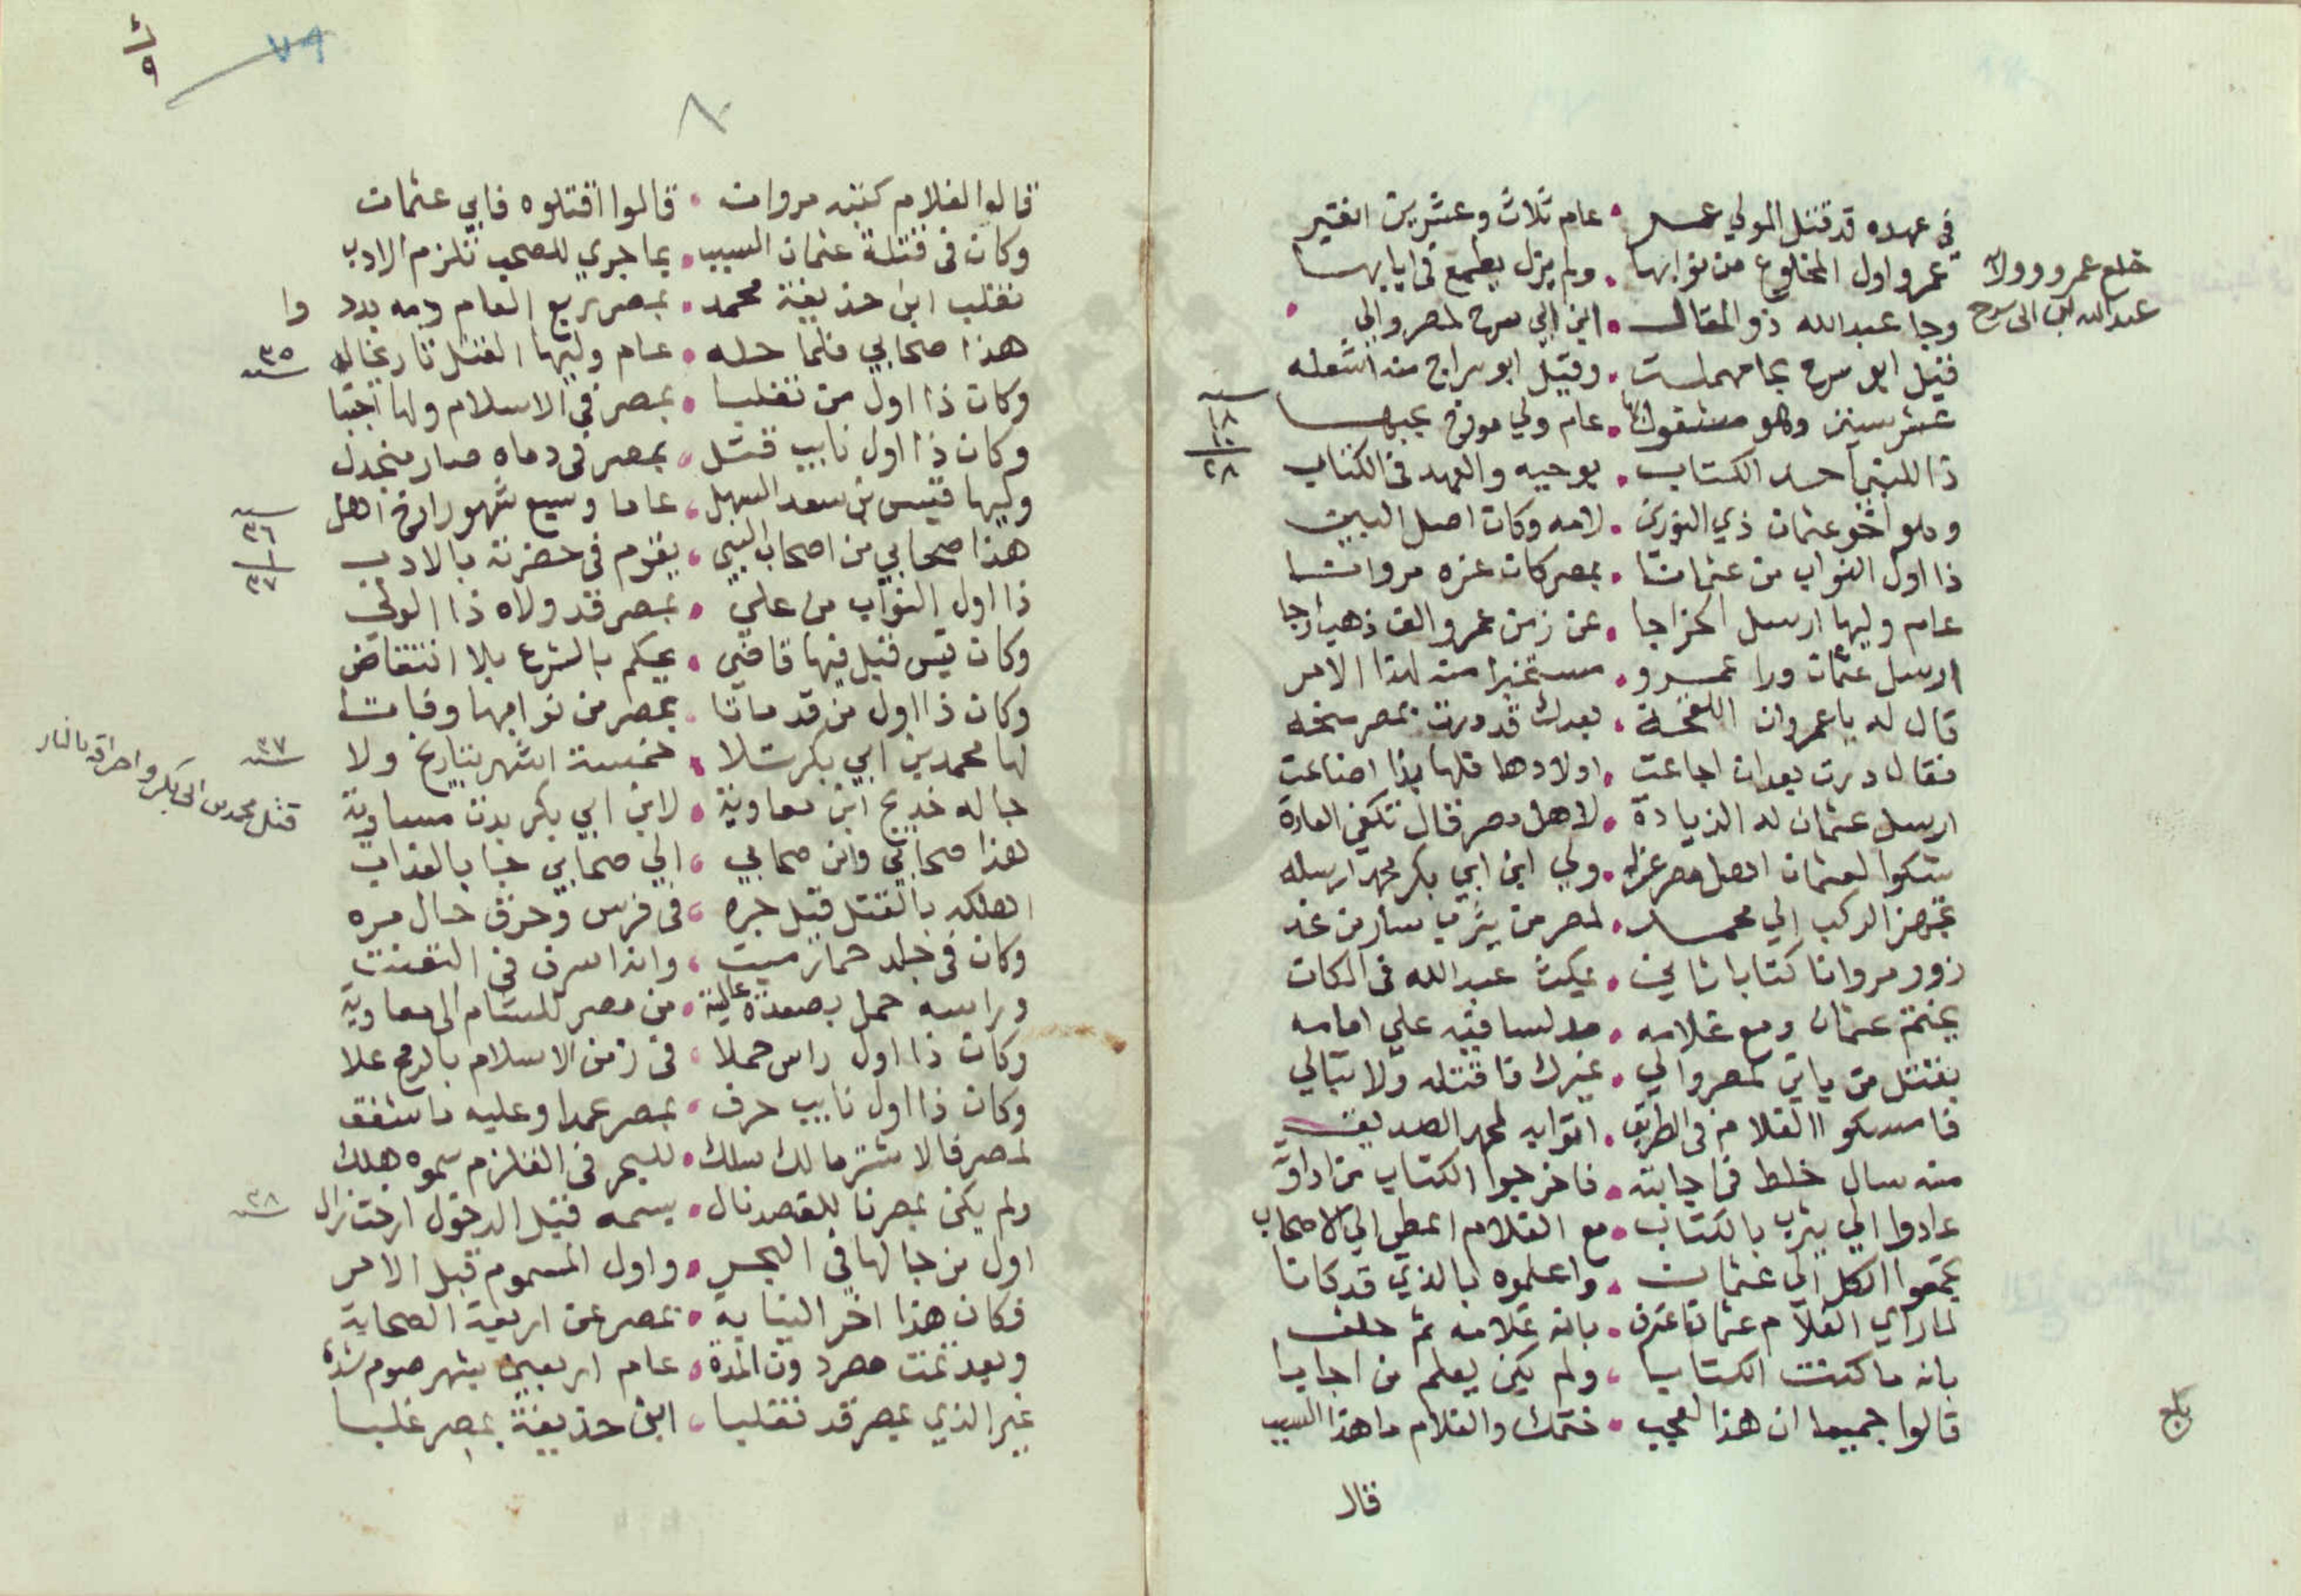 في عهده قد قتل المولي عمر • عام ثلاث وعشرين افتير
عمرو اول المخلوع من نوابها • ولم يزل يطمع في ايابها
خلع عمرو وولاة
عبد الله ابن ابي سرح
وجا عبد الله ذو المقال • ابن ابي سرح لمصر والي
قتيل ابو سرح بحا مهملت • وقيل ابو سراج من اشعله
عشر سنين وهو مشقوك • عام ولي موفي بجبها
سنه
١٨
١٠
٢٨
ذا للنبي احد الكتاب • يوحيه والعهد في الكتاب
وهو اخو عثمان ذي النورين • لامه وكان اصل البيت
ذا اول النواب من عثمانا • بمصر كان عزه مروانا
عام وليها ارسل الخراجا • عن زمن عمرو الف ذهب ارجا
ارسل عثمان ورا عمرو • مستخبرا منه لهذا الامر
قال له يا عمرو ان اللقحة • بعدك قد درت بمصر سخه
فقال درت بعد ان اجاعت • اولادها فلها بذا اضاعت
ارسل عثمان له الزيادة • لاهل مصر قال تكفي العادة
شكوا لعثمان اهل مصر عزله • ولي ابن ابي بكر محمد ارسله
تجهز الركب الي محمد • لمصر من يثرب سار من غد
زور مروان كتابا ثاني • يمكث عبد الله في المكان
بختم عثمان ومع غلامه • مدلسا فيه علي امامه
بقتل من ياتي لمصر والي • غيرك فاقتله ولا تبالي
فامسكوا الغلام في الطريق • اتوا به لمحمد الصديق
منه سال خلط في اجابته • فاخرجوا الكتاب من اداوته
عادوا الي يثرب بالكتاب • مع الغلام اعطي الي الاصحاب
تجمعوا الكل الي عثمان • واعلموه بالذي قد كانا
لما راي الغلام عثمان اعترف • بانه غلامه ثم حلف
بانه ما كتبت الكتابا • ولم يكن يعلم من اجابا
قالوا جميعا ان هذا لعجب • ختمك والغلام ما هذا السبب
بلغ
قال
٧٩
٨٠
قالوا الغلام كتبه مروان • قالوا اقتلوه فابي عثمان
وكان في قتلة عثمان السبب • بما جري للصحب نلزم الادب
تغلب ابن حذيفة محمد • بمصر ربع العام ومه بدد وا
هذا صحابي فلما حله • عام وليها القتل تاريخا له
سنه ٣٥
وكان ذا اول من تغلبا • بمصر في الاسلام ولها اجتبا
وكان ذا اول نايب قتل • بمصر في دماه صار منجدل
وليها قيس بن سعد السهل • عاما وسبع شهور ارخ اهل
سنه
٣٦
١
٣٧
هذا صحابي من اصحاب النبي • يقوم في حضرته بالادب
ذا اول النواب من علي • بمصر قد ولاه ذا الولي
وكان قيس قبل فيها قاضي • يحكم بالشرع بلا انتقاض
وكان ذا اول من قد ماتا • بمصر من نوابها وفاتا
لها محمد بن ابي بكر تلا • خمسة اشهر بتاريخ ولا
سنه ٣٧
قتل محمد بن ابي بكر واحراقه بالنار
جا له خديج ابن معاوية • لابن ابي بكر بدت مساوية
هذا صحابي وابن صحابي • الي صحابي جا بالعذاب
اهلكه بالقتل قبل جره • في فرس وحرق حال مره
وكان في جلد حمار ميت • وانه اسرف في التعنت
وراسه حمل بصعدة عالية • من مصر للشام الي معاوية
وكان ذا اول راس حملا • في زمن الاسلام بالرمح علا
وكان ذا اول نايب حرق • بمصر عمدا وعليه ما شفق
لمصر فالاشتر مالك سلك • للبحر في القلزم سموه هلك
ولم يكن بمصرنا بالقصد نال • بسمه قبل الدخول ارخت زال
سنه ٣٨
اول من جا لها في البحر • واول المسموم قبل الامر
فكان هذا اخر النيابة • بمصر عن اربعة الصحابة
وبعد تمت مصر دون المدة • عام اربعين بشهر صوم شدة
غير الذي بمصر قد تغلبا • ابن حذيفة بمصر غلبا